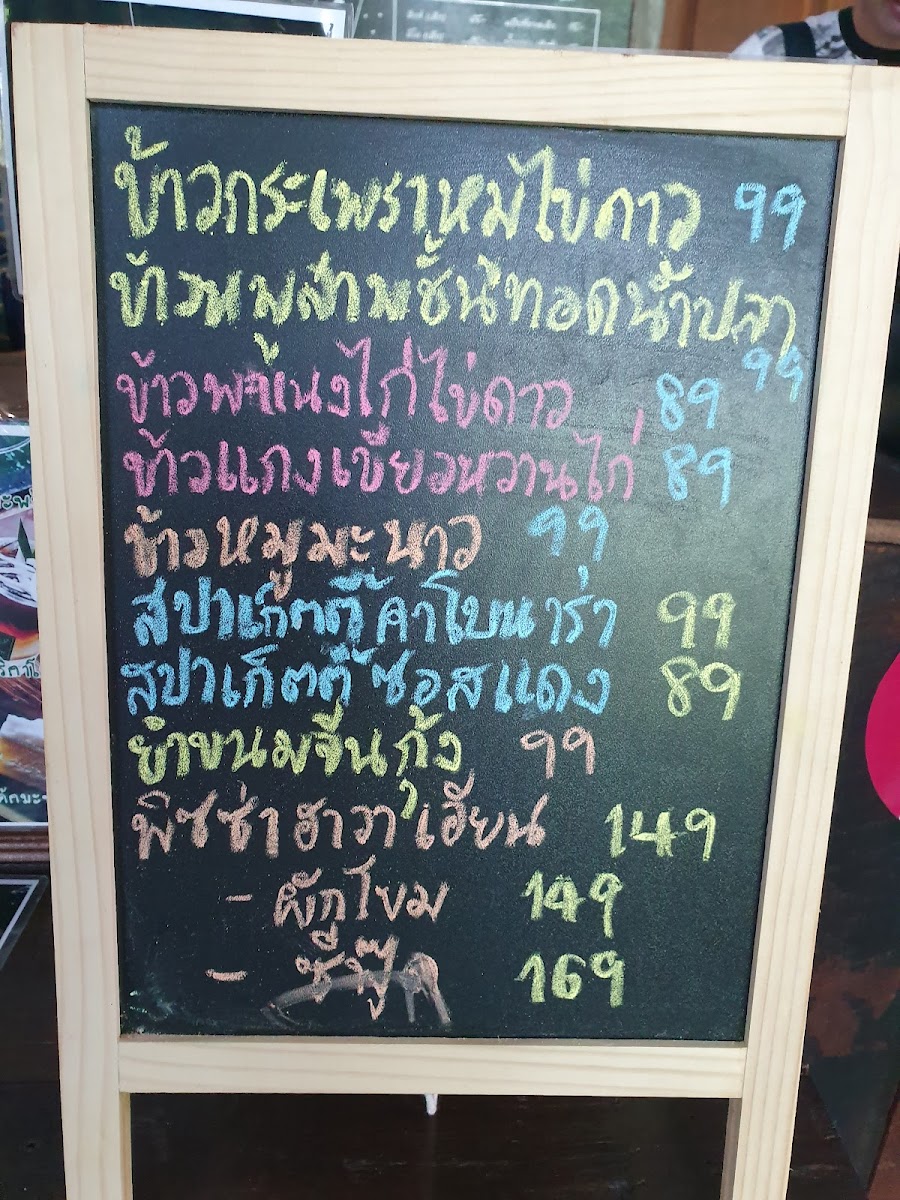 ข้าวกระเพราหมูไข่ดาว 99
ข้าวหมูสามชั้นทอดน้ำปลา
99
ข้าวพะแนงไก่ไข่ดาว 89
ข้าวแกงเขียวหวานไก่ 89
ข้าวหมูมะนาว 99
สปาเก็ตตี้คาโบนาร่า 99
สปาเก็ตตี้ซอสแดง 89
ยำขนมจีนกุ้ง 99
พิซซ่าฮาวาเอียน 149
- ผักโขม 149
- ซีฟู๊ด 169